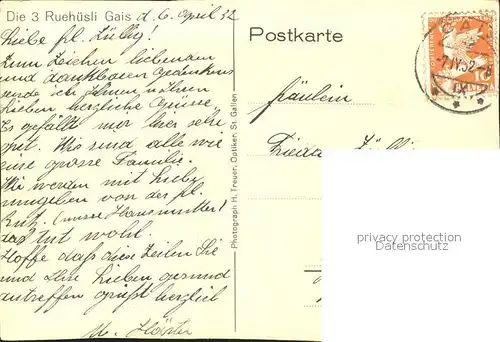 Die 3 Ruehüsli Gais d. 6. April 32
Liebe frl. Züllig!
Zum Zeichen liebenden
und dankbaren Gedenkens
sende ich Ihnen u. Ihren
Lieben herzliche Grüsse.
Es gefällt mir hier sehr
gut. Wir sind alle wie
eine grosse Familie.
Wir werden mit Liebe
umgeben von der frl.
Ruth. (unser Hausmutter)
das tut wohl.
Hoffe dass diese Zeilen Sie
und Ihre Lieben gesund
antreffen grüsst herzlich
Photograph H. Treuer, Oetiker, St. Gallen
Postkarte
GAIS
-7.IV.32
Fräulein
privacy protection
Datenschutz